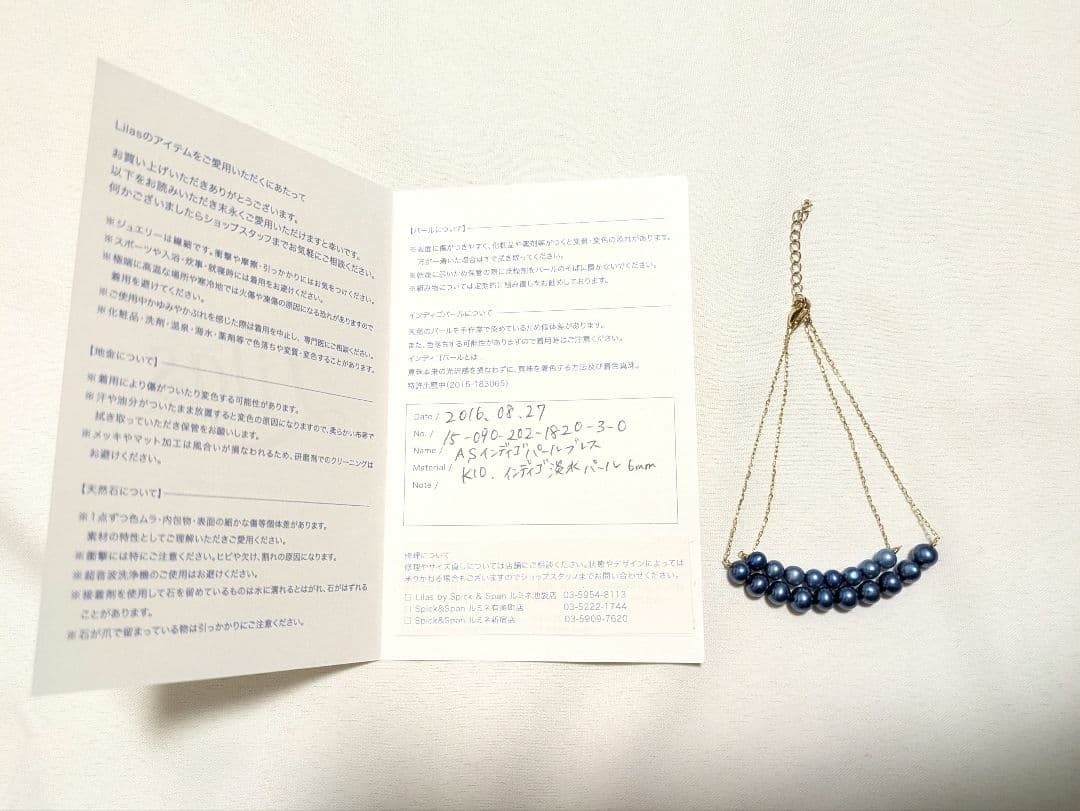 Lilasのアイテムをご愛用いただくにあたって
お買い上げいただきありがとうございます。
以下をお読みいただき末永くご愛用いただけますと幸いです。
何かございましたらショップスタッフまでお気軽にご相談ください。
※ジュエリーは繊細です。衝撃や摩擦・引っかかりにはお気をつけください。
※スポーツや入浴・炊事・就寝時には着用をお避けください。
※極端に高温な場所や寒冷地では火傷や凍傷の原因になる恐れがありますので
着用を避けてください。
※ご使用中かゆみやかぶれを感じた際は着用を中止し、専門医にご相談ください。
※化粧品・洗剤・温泉・海水・薬剤等で色落ちや変質・変色することがあります。
【地金について】
※着用により傷がついたり変色する可能性があります。
※汗や油分がついたまま放置すると変色の原因になりますので、柔らかい布等で
拭き取っていただき保管をお願いします。
※メッキやマット加工は風合いが損なわれるため、研磨剤でのクリーニングは
お避けください。
【天然石について】
※1点ずつ色ムラ・内包物・表面の細かな傷等個体差があります。
素材の特性としてご理解いただきご愛用ください。
※衝撃には特にご注意ください。ヒビや欠け、割れの原因になります。
※超音波洗浄機のご使用はお避けください。
※接着剤を使用して石を留めているものは水に濡れるとはがれ、石がはずれる
ことがあります。
※石が爪で留まっている物は引っかかりにご注意ください。
【パールについて】
※表面に傷がつきやすく、化粧品や薬剤等がつくと変質・変色の恐れがあります。
万が一着いた場合はすぐ拭き取ってください。
※乾燥に弱いため保管の際に乾燥剤をパールのそばに置かないでください。
※組み物については定期的に組み直しをお勧めしております。
インディゴパールについて
天然のパールを手作業で染めているため個体差があります。
また、色落ちする可能性がありますので着用時はご注意ください。
インディゴパールとは…
真珠本来の光沢感を損なわずに、真珠を着色する方法及び着色真珠。
特許出願中(2015-183065)
Date / 2016.08.27
No. / 15-090-202-1820-3-0
Name / ASインディゴパールブレス
Material / K10. インディゴ淡水パール 6mm
Note /
修理について
修理やサイズ直しについては店舗にご相談ください。状態やデザインによっては
承りかねる場合もございますのでショップスタッフまでお問い合わせください。
□ Lilas by Spick & Span ルミネ池袋店 03-5954-8113
□ Spick&Span ルミネ有楽町店 03-5222-1744
□ Spick&Span ルミネ新宿店 03-5909-7620